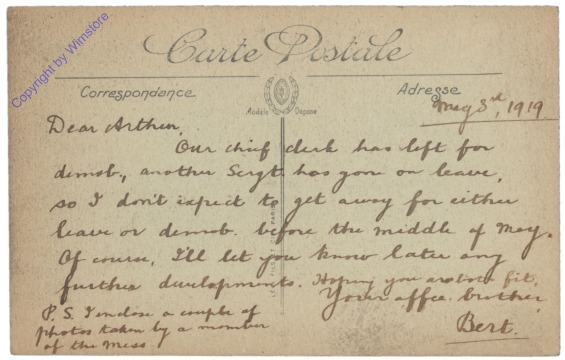 Copyright by Wimstore
Carte Postale
Correspondance
Adresse
Modèle Déposé
May 3rd, 1919.
Dear Arthur,
Our chief clerk has left for
demob., another Sergt. has gone on leave,
so I don't expect to get away for either
leave or demob. before the middle of May.
Of course, I'll let you know later any
further developments. Hoping you are both fit,
Your affec. brother,
Bert.
P.S. I enclose a couple of
photos taken by a member
of the Mess.